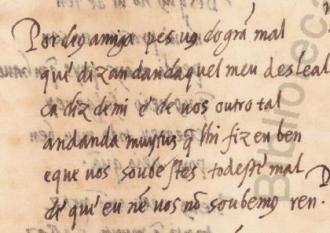 Por d's amiga pes uꝯ dogrã mal
que dizan dandaquel meu desleal
ca diz demi e de uos outro tal
andanda muytus q̃ lhi fiz eu ben
eque uos soubestes todeste mal
de que eu nẽ uos nõ soubemꝯ ren.
Bibliotec